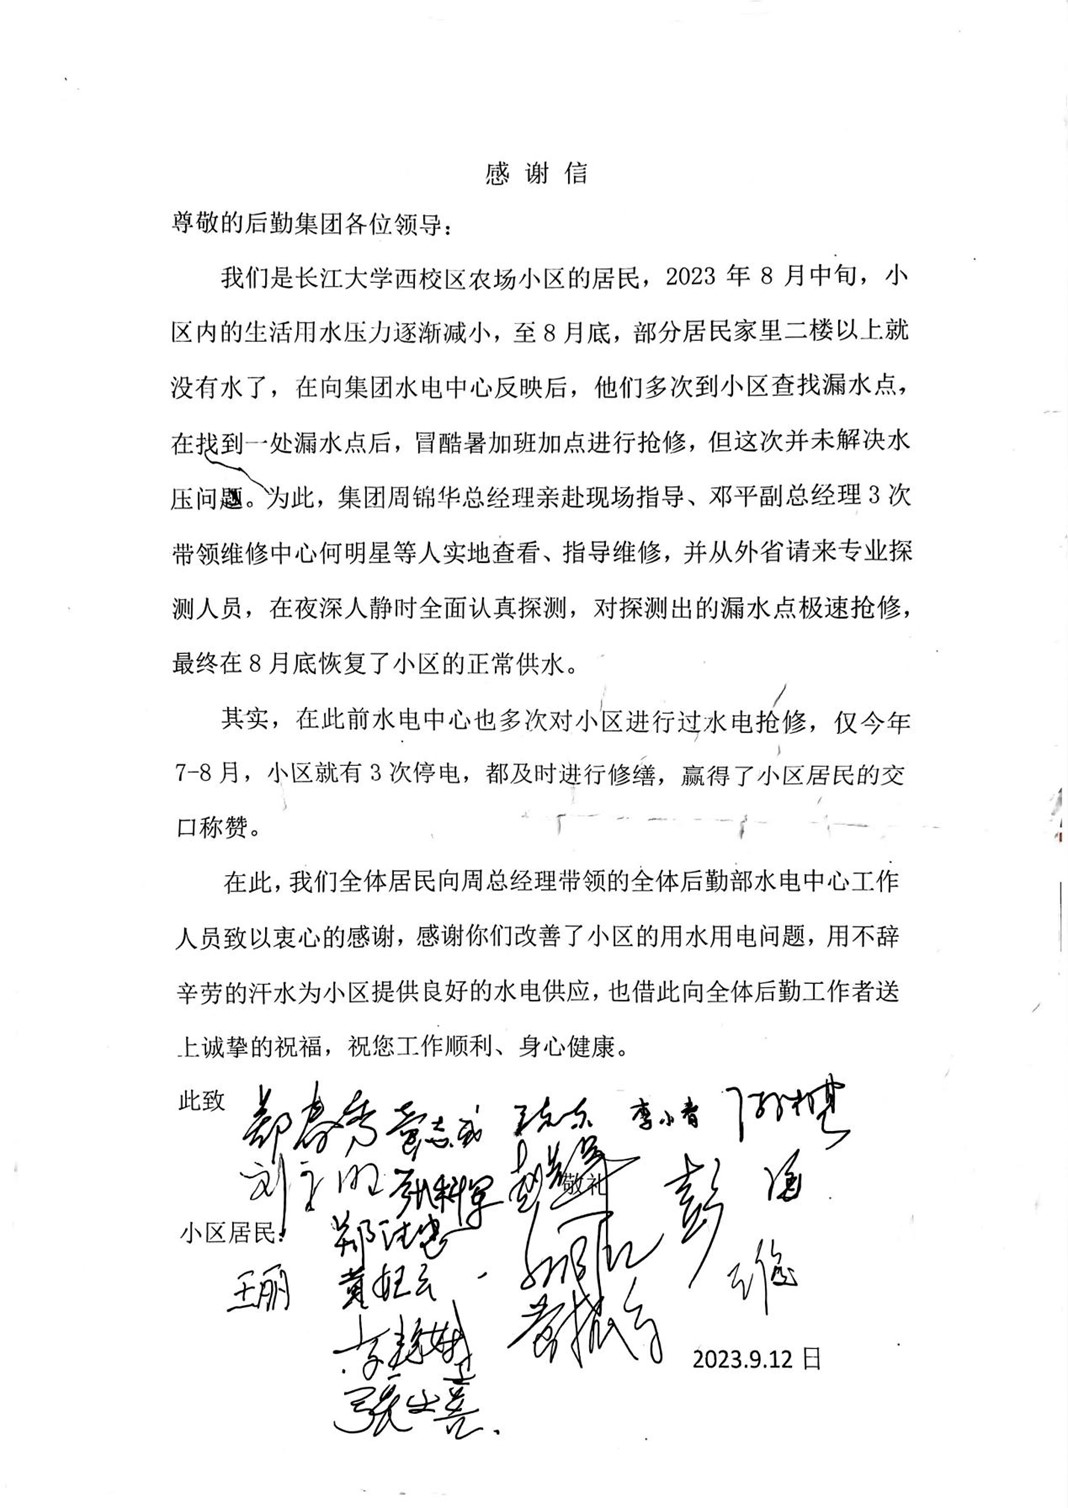 感 谢 信
尊敬的后勤集团各位领导:
我们是长江大学西校区农场小区的居民，2023 年 8 月中旬，小
区内的生活用水压力逐渐减小，至 8 月底，部分居民家里二楼以上就
没有水了，在向集团水电中心反映后，他们多次到小区查找漏水点，
在找到一处漏水点后，冒酷暑加班加点进行抢修，但这次并未解决水
压问题。为此，集团周锦华总经理亲赴现场指导、邓平副总经理 3 次
带领维修中心何明星等人实地查看、指导维修，并从外省请来专业探
测人员，在夜深人静时全面认真探测，对探测出的漏水点极速抢修，
最终在 8 月底恢复了小区的正常供水。
其实，在此前水电中心也多次对小区进行过水电抢修，仅今年
7-8 月，小区就有 3 次停电，都及时进行修缮，赢得了小区居民的交
口称赞。
在此，我们全体居民向周总经理带领的全体后勤部水电中心工作
人员致以衷心的感谢，感谢你们改善了小区的用水用电问题，用不辞
辛劳的汗水为小区提供良好的水电供应，也借此向全体后勤工作者送
上诚挚的祝福，祝您工作顺利、身心健康。
此致
郑春秀 李小青
敬礼
张科军
小区居民:
王丽
2023.9.12 日